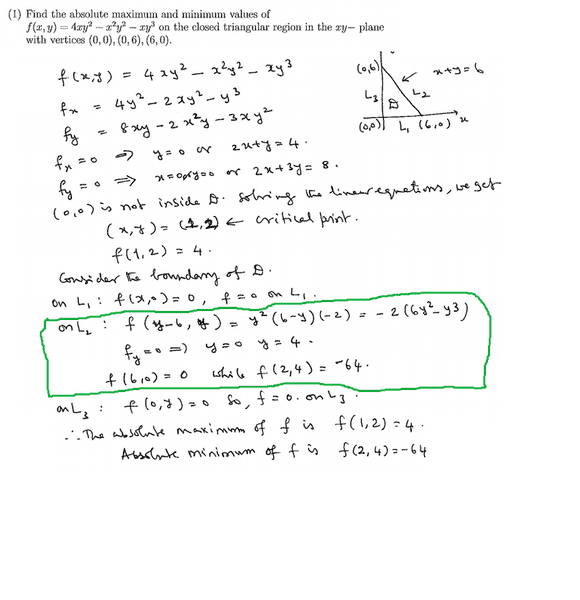 (1) Find the absolute maximum and minimum values of
f(x, y) = 4xy² − x²y² − xy³ on the closed triangular region in the xy− plane
with vertices (0, 0), (0, 6), (6, 0).
f(x,y) = 4xy² − x²y² − xy³
fx = 4y² − 2xy² − y³
fy = 8xy − 2x²y − 3xy²
fx = 0 ⇒ y = 0 or 2x+y = 4.
fy = 0 ⇒ x = 0 or y = 0 or 2x+3y = 8.
(0,6)
x+y = 6
L3
D
L2
(0,0)
L1
(6,0)
x
(0,0) is not inside D. Solving the linear equations, we get
(x,y) = (1,2) ← critical point.
f(1,2) = 4.
Consider the boundary of D.
on L1 : f(x,0) = 0, f = 0 on L1.
on L2 : f(y−6, y) = y²(6−y)(−2) = −2(6y² − y3)
fy = 0 ⇒ y = 0 y = 4.
f(6,0) = 0 while f(2,4) = −64.
on L3 : f(0,y) = 0 So, f = 0. on L3.
∴ The absolute maximum of f is f(1,2) = 4.
Absolute minimum of f is f(2,4) = −64